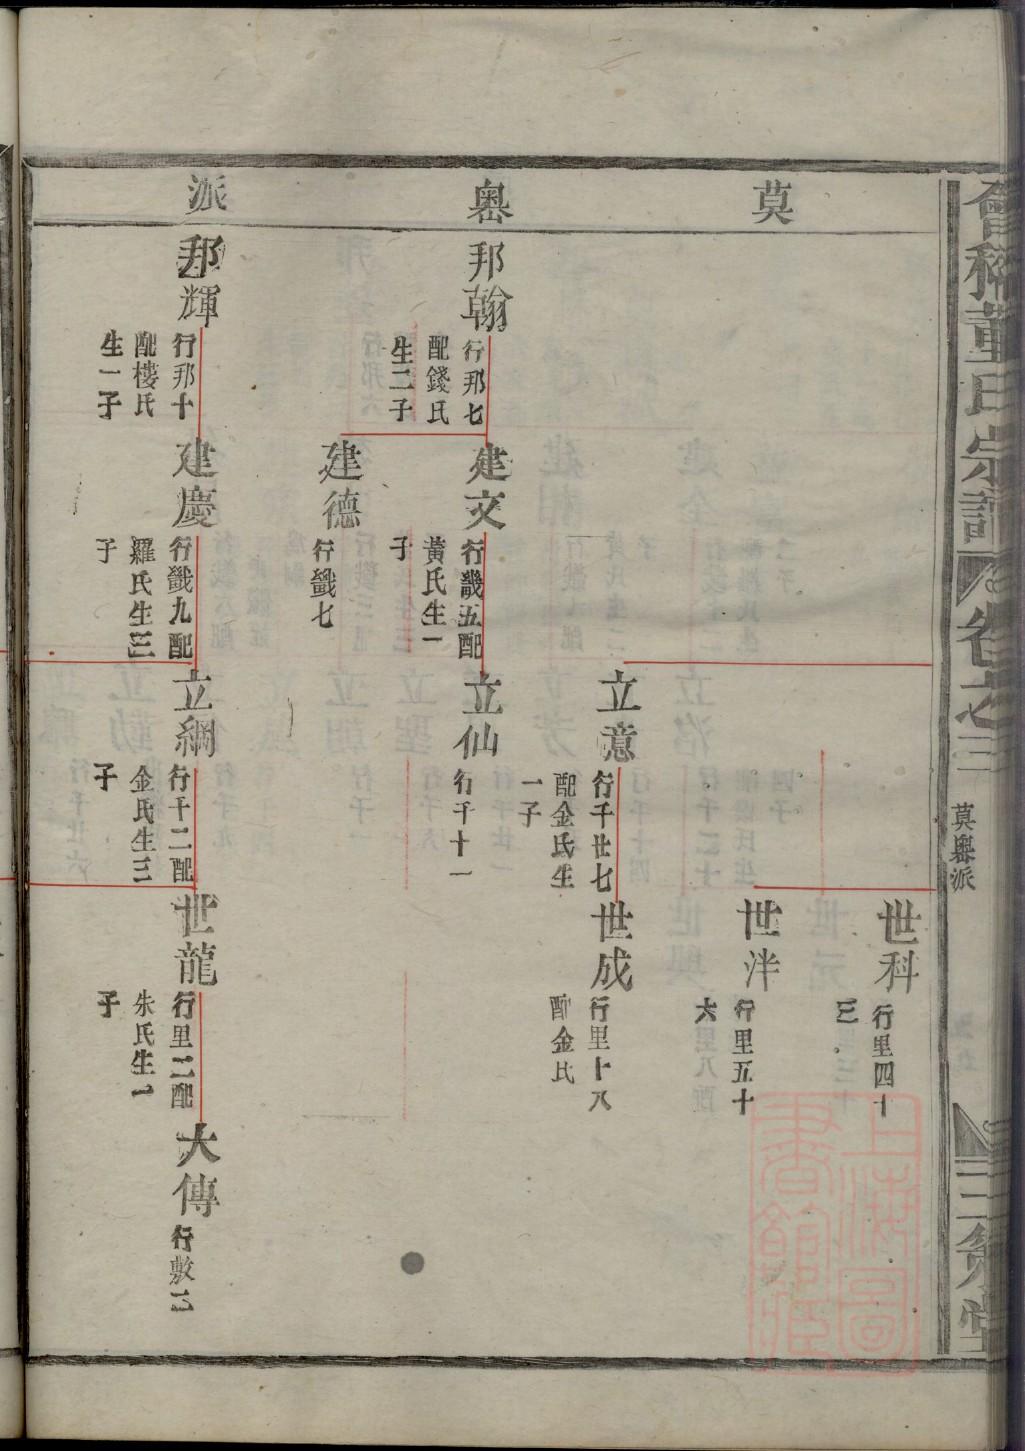 會稽董氏宗譜
卷之三
莫奥派
三策堂
莫奥派
邦翰
行邦七
配錢氏
生二子
邦輝
行邦十
配樓氏
生一子
建文
行畿五配
黃氏生一
子
建德
行畿七
建慶
行畿九配
羅氏生三
子
立意
行千廿七
配金氏生
一子
立仙
行千十一
立綱
行千二配
金氏生三
子
世科
行里四十
三
世泮
行里五十
六
世成
行里十八
配金氏
世龍
行里二配
朱氏生一
子
大傳
行敷三
上海圖
書館藏